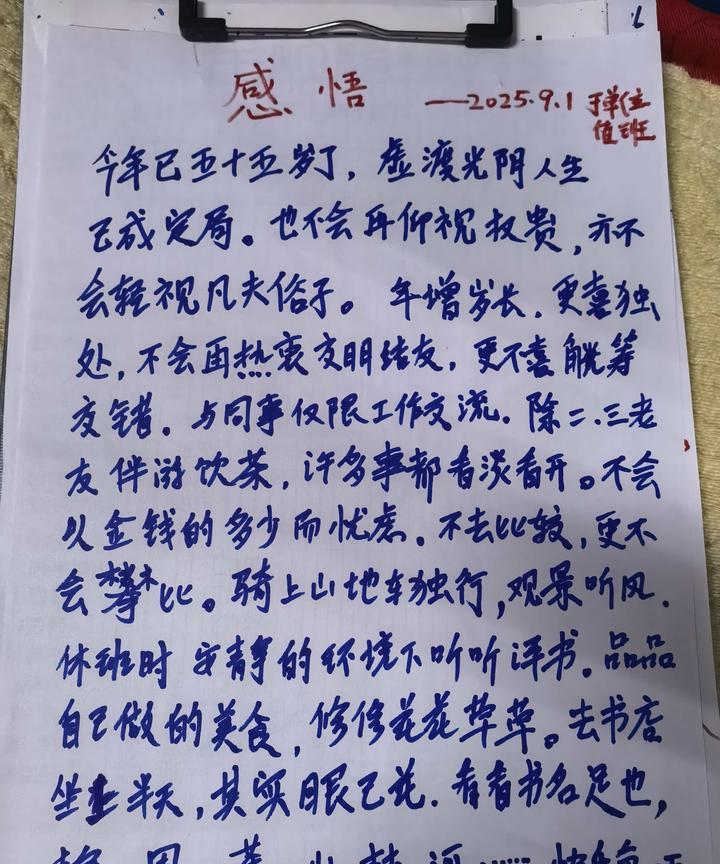 感悟
——2025.9.1 于单位
值班
今年已五十五岁了，虚渡光阴人生
已成定局。也不会再仰视权贵，亦不
会轻视凡夫俗子。年增岁长，更喜独
处，不会再热衷交朋结友，更不喜觥筹
交错。与同事仅限工作交流。除二、三老
友伴游饮茶，许多事都看淡看开。不会
以金钱的多少而忧虑。不去比较，更不
会攀比。骑上山地车独行，观景听风。
休班时安静的环境下听听评书。品品
自己做的美食，修修花花草草。去书店
坐上半天，其实眼已花。看看书名足也，